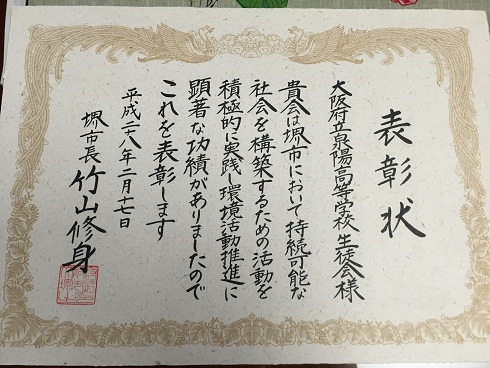 表彰状
大阪府立泉陽高等学校生徒会様
貴会は堺市において持続可能な
社会を構築するための活動を
積極的に実践し環境活動推進に
顕著な功績がありましたので
これを表彰します
平成二八年二月十七日
堺市長 竹山修身